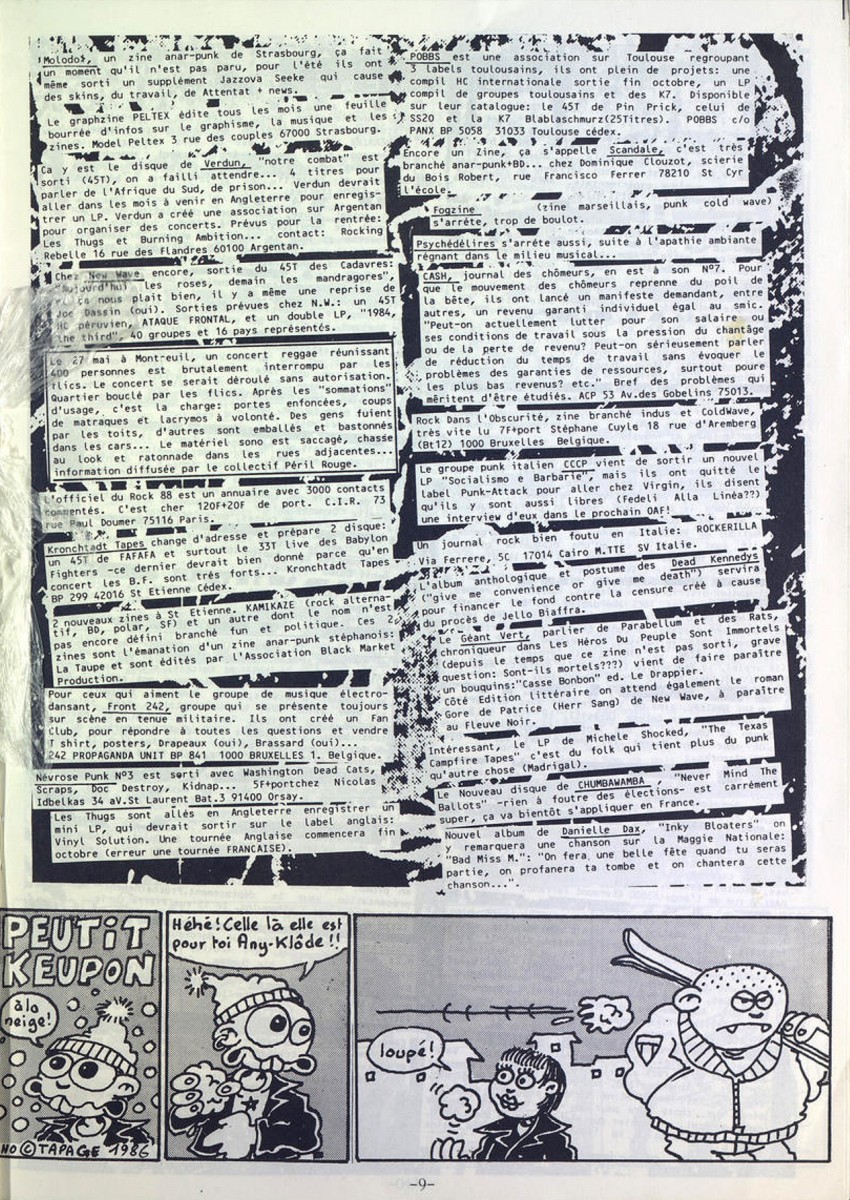 Molodoï, un zine anar-punk de Strasbourg, ça fait
un moment qu'il n'est pas paru, pour l'été ils ont
même sorti un supplément Jazzova Seeke qui cause
des skins, du travail, de Attentat + news.
Le graphzine PELTEX édite tous les mois une feuille
bourrée d'infos sur le graphisme, la musique et les
zines. Model Peltex 3 rue des couples 67000 Strasbourg.
Ca y est le disque de Verdun, "notre combat" est
sorti (45T), on a failli attendre... 4 titres pour
parler de l'Afrique du Sud, de prison... Verdun devrait
aller dans les mois à venir en Angleterre pour enregis-
trer un LP. Verdun a créé une association sur Argentan
pour organiser des concerts. Prévus pour la rentrée:
Les Thugs et Burning Ambition... contact: Rocking
Rebelle 16 rue des Flandres 60100 Argentan.
Chez New Wave encore, sortie du 45T des Cadavres:
"Aujourd'hui les roses, demain les mandragores",
ça nous plait bien, il y a même une reprise de
Joe Dassin (oui). Sorties prévues chez N.W.: un 45T
HC péruvien, ATAQUE FRONTAL, et un double LP, "1984,
the third", 40 groupes et 16 pays représentés.
Le 27 mai à Montreuil, un concert reggae réunissant
400 personnes est brutalement interrompu par les
flics. Le concert se serait déroulé sans autorisation.
Quartier bouclé par les flics. Après les "sommations"
d'usage, c'est la charge: portes enfoncées, coups
de matraques et lacrymos à volonté. Des gens fuient
par les toits, d'autres sont emballés et bastonnés
dans les cars... Le matériel sono est saccagé, chasse
au look et ratonnade dans les rues adjacentes...
information diffusée par le collectif Péril Rouge.
L'officiel du Rock 88 est un annuaire avec 3000 contacts
commentés. C'est cher 120F+20F de port. C.I.R. 73
rue Paul Doumer 75116 Paris.
Kronchtadt Tapes change d'adresse et prépare 2 disque:
un 45T de FAFAFA et surtout le 33T live des Babylon
Fighters -ce dernier devrait bien donné parce qu'en
concert les B.F. sont très forts... Kronchtadt Tapes
BP 299 42016 St Etienne Cédex.
2 nouveaux zines à St Etienne. KAMIKAZE (rock alterna-
tif, BD, polar, SF) et un autre dont le nom n'est
pas encore défini branché fun et politique. Ces 2
zines sont l'émanation d'un zine anar-punk stéphanois:
La Taupe et sont édités par l'Association Black Market
Production.
Pour ceux qui aiment le groupe de musique électro-
dansant, Front 242, groupe qui se présente toujours
sur scène en tenue militaire. Ils ont créé un Fan
Club, pour répondre à toutes les questions et vendre
T shirt, posters, Drapeaux (oui), Brassard (oui)...
242 PROPAGANDA UNIT BP 841 1000 BRUXELLES 1. Belgique.
Névrose Punk N°3 est sorti avec Washington Dead Cats,
Scraps, Doc Destroy, Kidnap... 5F+portchez Nicolas
Idbelkas 34 aV.St Laurent Bat.3 91400 Orsay.
Les Thugs sont allés en Angleterre enregistrer un
mini LP, qui devrait sortir sur le label anglais:
Vinyl Solution. Une tournée Anglaise commencera fin
octobre (erreur une tournée FRANCAISE).
POBBS est une association sur Toulouse regroupant
3 labels toulousains, ils ont plein de projets: une
compil HC internationale sortie fin octobre, un LP
compil de groupes toulousains et des K7. Disponible
sur leur catalogue: le 45T de Pin Prick, celui de
SS20 et la K7 Blablaschmurz(25Titres). POBBS c/o
PANX BP 5058 31033 Toulouse cédex.
Encore un Zine, ça s'appelle Scandale, c'est très
branché anar-punk+BD... chez Dominique Clouzot, scierie
du Bois Robert, rue Francisco Ferrer 78210 St Cyr
l'école.
Fogzine (zine marseillais, punk cold wave)
s'arrête, trop de boulot.
Psychédélires s'arrête aussi, suite à l'apathie ambiante
régnant dans le milieu musical...
CASH, journal des chômeurs, en est à son N°7. Pour
que le mouvement des chômeurs reprenne du poil de
la bête, ils ont lancé un manifeste demandant, entre
autres, un revenu garanti individuel égal au smic.
"Peut-on actuellement lutter pour son salaire ou
ses conditions de travail sous la pression du chantage
ou de la perte de revenu? Peut-on sérieusement parler
de réduction du temps de travail sans évoquer le
problèmes des garanties de ressources, surtout poure
les plus bas revenus? etc." Bref des problèmes qui
méritent d'être étudiés. ACP 53 Av.des Gobelins 75013.
Rock Dans l'Obscurité, zine branché indus et ColdWave,
très vite lu 7F+port Stéphane Cuyle 18 rue d'Aremberg
(Bt12) 1000 Bruxelles Belgique.
Le groupe punk italien CCCP vient de sortir un nouvel
LP "Socialismo e Barbarie", mais ils ont quitté le
label Punk-Attack pour aller chez Virgin, ils disent
qu'ils y sont aussi libres (Fedeli Alla Linéa??)
une interview d'eux dans le prochain OAF!
Un journal rock bien foutu en Italie: ROCKERILLA
Via Ferrere, 5C 17014 Cairo M.TTE SV Italie.
L'album anthologique et postume des Dead Kennedys
("give me convenience or give me death") servira
pour financer le fond contre la censure créé à cause
du procès de Jello Biaffra.
Le Géant Vert, parlier de Parabellum et des Rats,
chroniqueur dans Les Héros Du Peuple Sont Immortels
(depuis le temps que ce zine n'est pas sorti, grave
question: Sont-ils mortels???) vient de faire paraître
un bouquins:"Casse Bonbon" ed. Le Drappier.
Côté Edition littéraire on attend également le roman
Gore de Patrice (Herr Sang) de New Wave, à paraître
au Fleuve Noir.
Intéressant, le LP de Michele Shocked, "The Texas
Campfire Tapes" c'est du folk qui tient plus du punk
qu'autre chose (Madrigal).
Le Nouveau disque de CHUMBAWAMBA , "Never Mind The
Ballots" -rien à foutre des élections- est carrément
super, ça va bientôt s'appliquer en France.
Nouvel album de Danielle Dax, "Inky Bloaters" on
y remarquera une chanson sur la Maggie Nationale:
"Bad Miss M.": "On fera une belle fête quand tu seras
partie, on profanera ta tombe et on chantera cette
chanson..."
PEUTiT
KEUPON
à la
neige!
NO © TAPAGE 1986
Héhé! Celle là elle est
pour toi Any-Klôde!!
loupé!
-9-